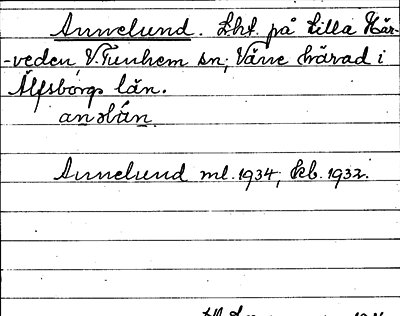 Annelund. Lht. på Lilla Här-
-veden V. Tunhem sn, Väne härad i
Älfsborgs län.
Annelund ml. 1934, kb. 1932.